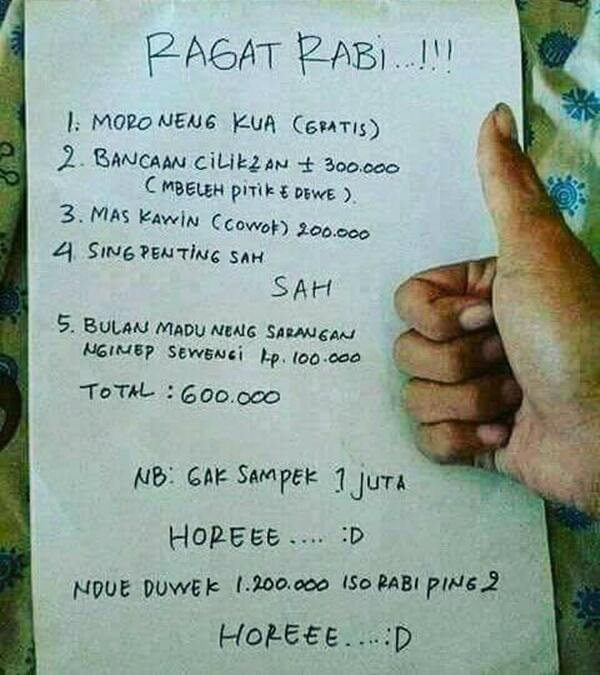 RAGAT RABi...!!!
1. MORO NENG KUA (GRATIS)
2. BANCAAN CiLiK2AN ± 300.000
(MBELEH PiTiK E DEWE).
3. MAS KAWiN (COWOK) 200.000
4 SING PENTiNG SAH
SAH
5. BULAN MADU NENG SARANGAN
NGINEP SEWENGi Rp. 100.000
TOTAL : 600.000
NB: GAK SAMPEK 1 JUTA
HOREEE .... :D
NDUE DUWEK 1.200.000 ISO RABI PING 2
HOREEE....:D